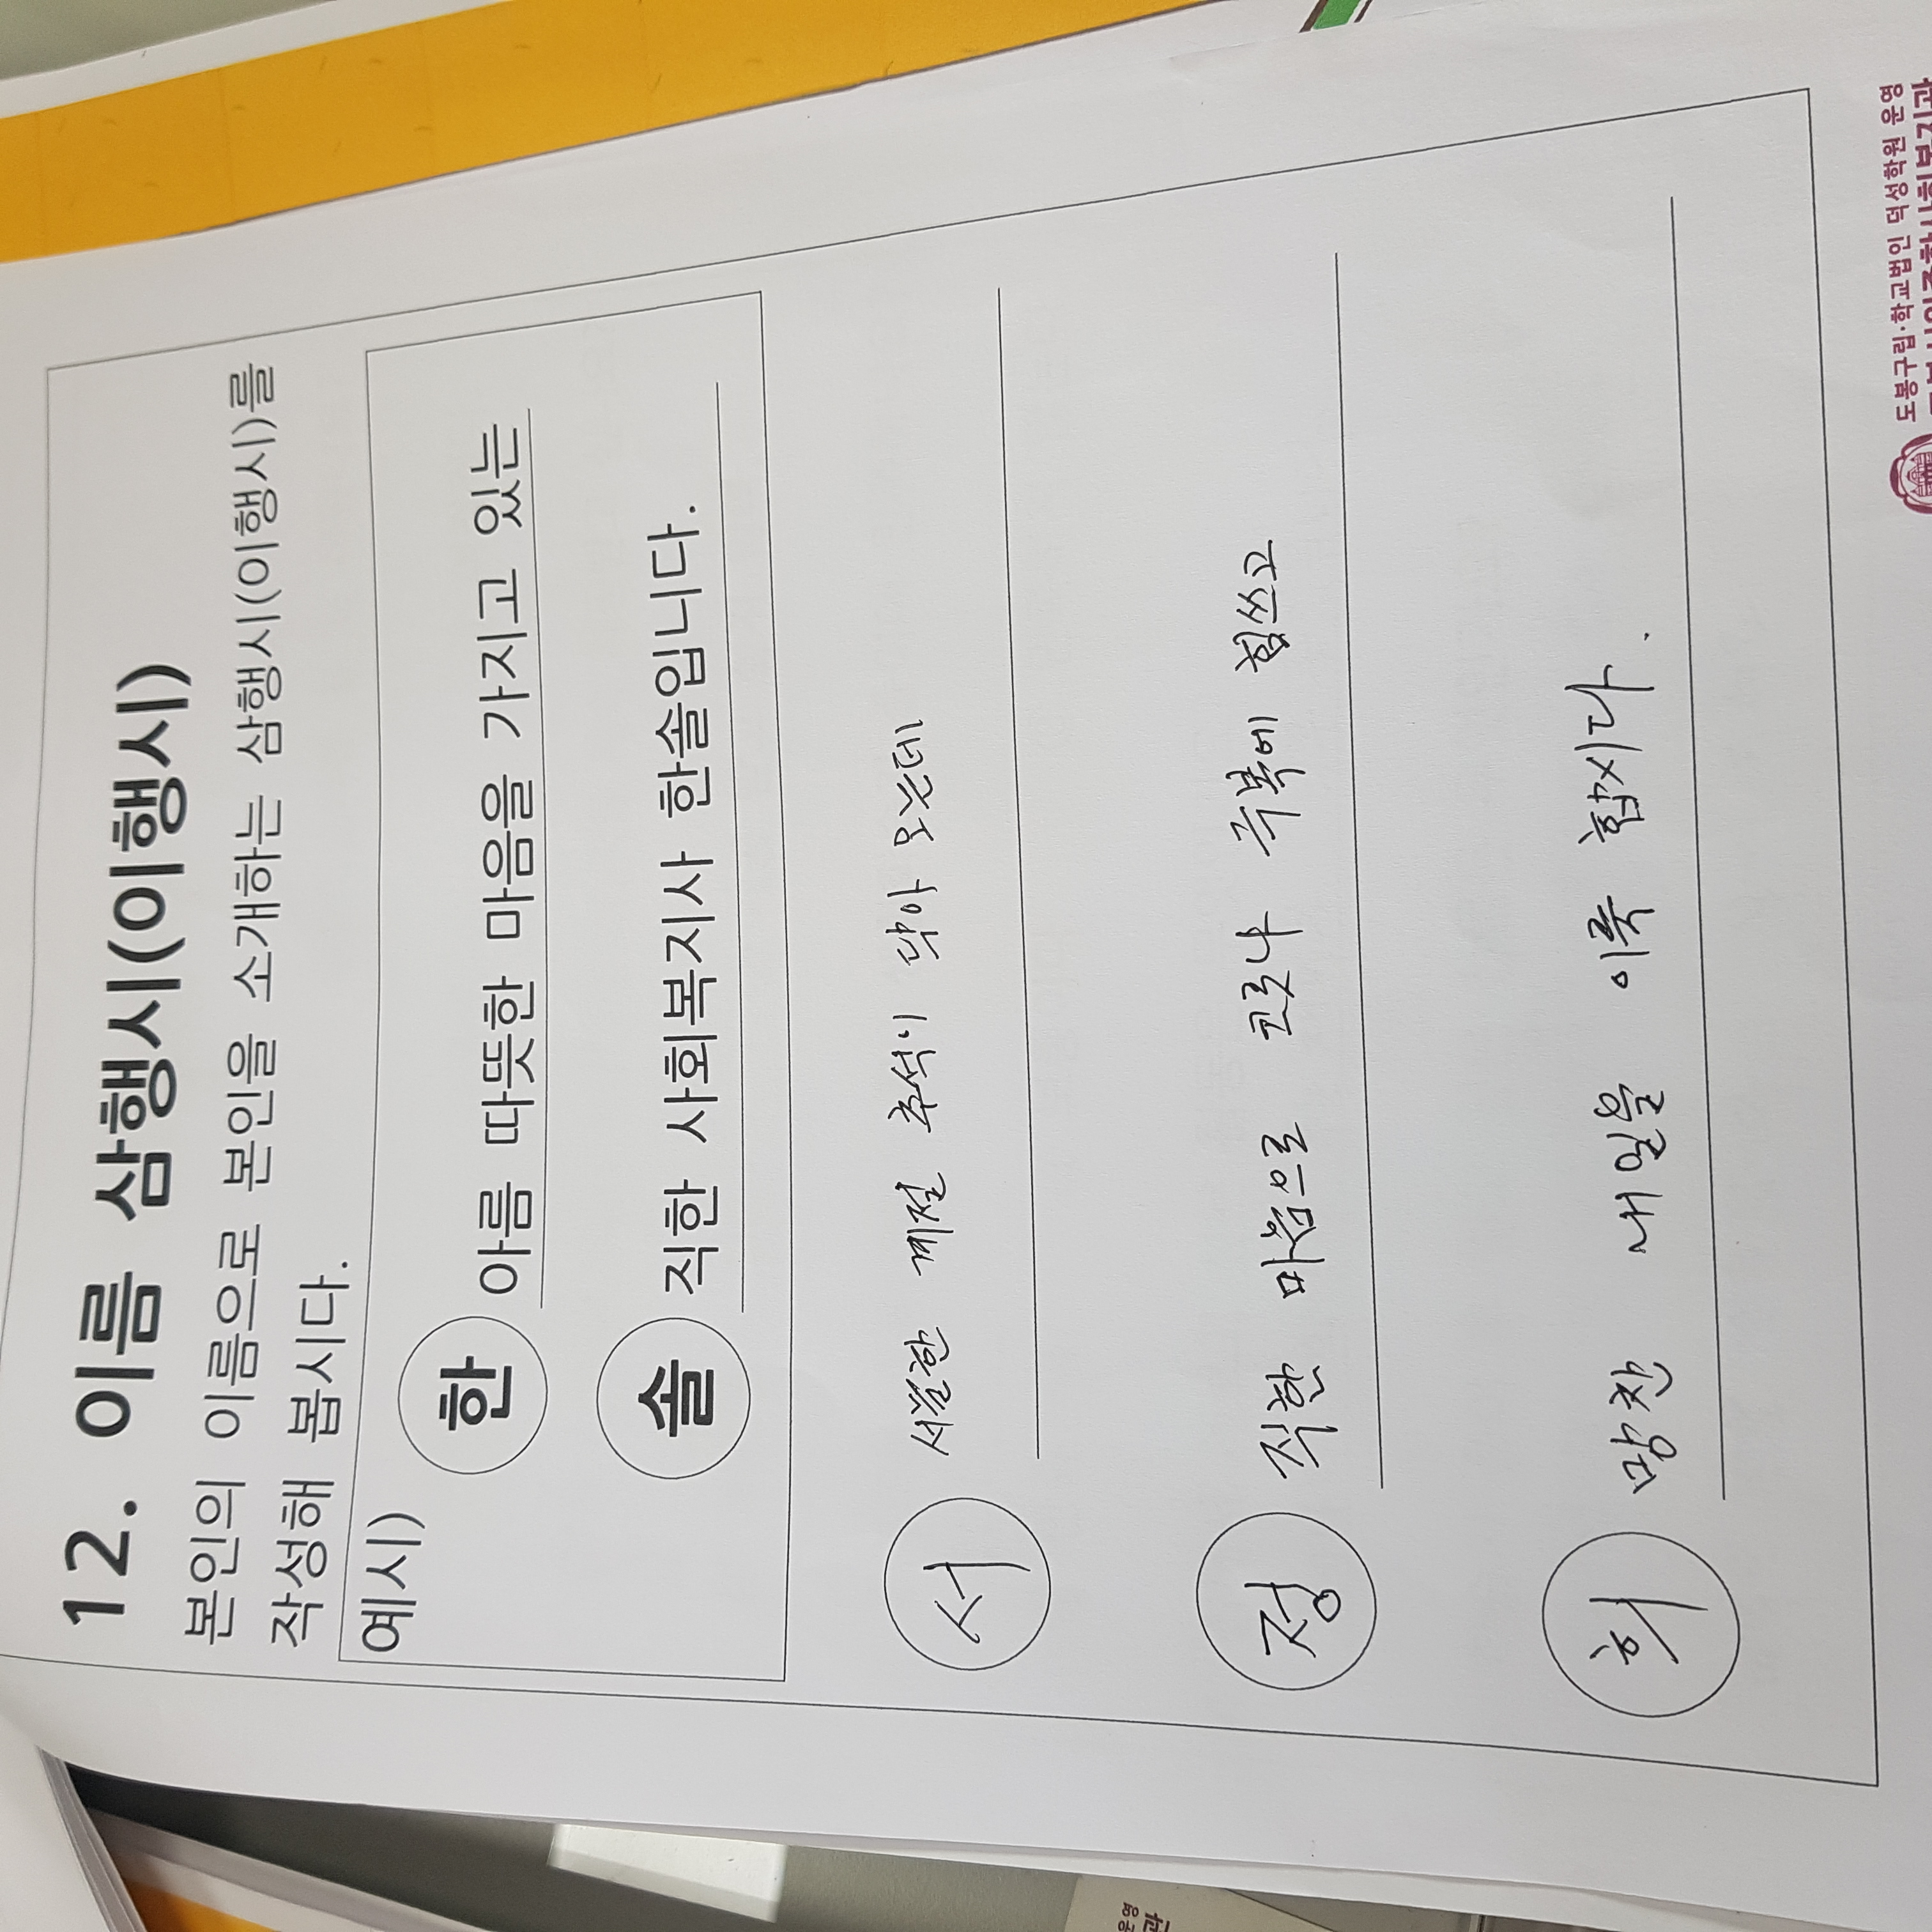 12. 이름 삼행시(이행시)
본인의 이름으로 본인을 소개하는 삼행시(이행시)를
작성해 봅시다.
예시)
한 아름 따뜻한 마음을 가지고 있는
솔 직한 사회복지사 한솔입니다.
서 서쓸한 계절 추석이 닥아 오는데
정 직한 마음으로 코로나 극복에 힘쓰고
희 망찬 내일을 이룩 합시다.
도봉구립·학교법인 덕성학원 운영